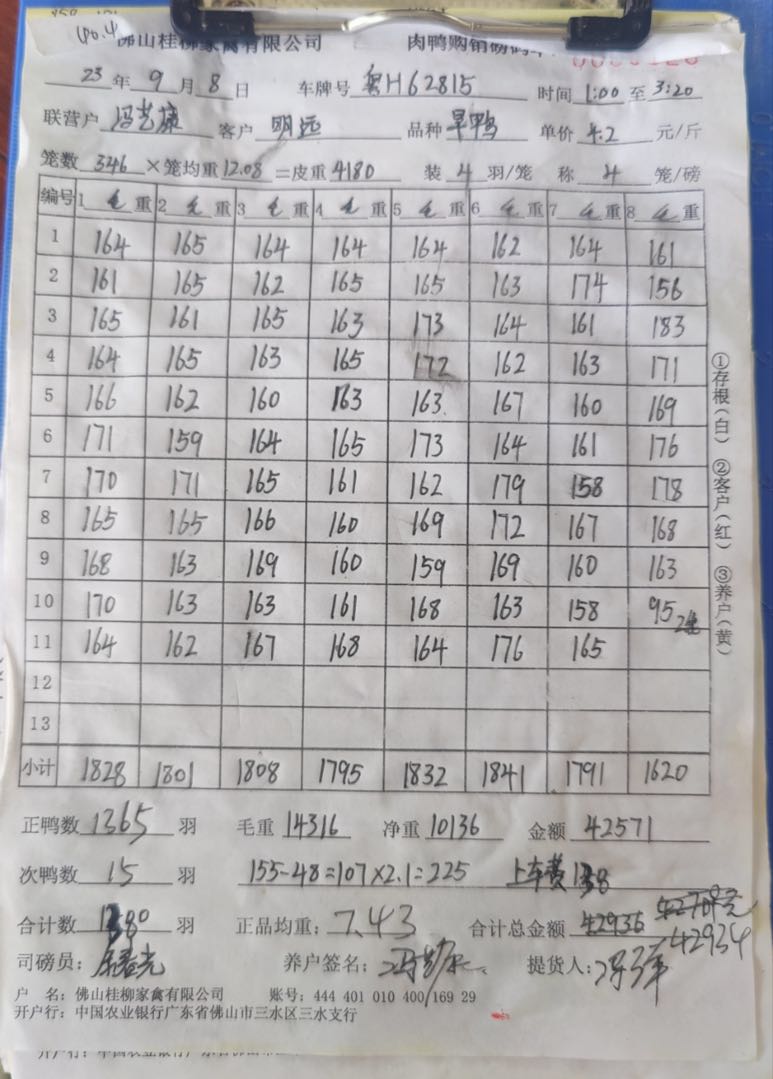 No.4
佛山桂柳家禽有限公司 肉鸭购销磅码单
23 年 9 月 8 日 车牌号 粤H62815 时间 1:00 至 3:20
联营户 冯艺康 客户 明远 品种 旱鸭 单价 4.2 元/斤
笼数 346 ×笼均重 12.08 =皮重 4180 装 4 羽/笼 称 4 笼/磅
编号 1 毛 重 2 毛 重 3 毛 重 4 毛 重 5 毛 重 6 毛 重 7 毛 重 8 毛 重
1 164 165 164 164 164 162 164 161
2 161 165 162 165 165 163 174 156
3 165 161 165 163 173 164 161 183
4 164 165 163 165 172 162 163 171
5 166 162 160 163 163 167 160 169
6 171 159 164 165 173 164 161 176
7 170 171 165 161 162 179 158 178
8 165 165 166 160 169 172 167 168
9 168 163 169 160 159 169 160 163
10 170 163 163 161 168 163 158 95 2笼
11 164 162 167 168 164 176 165
12
13
小计 1828 1801 1808 1795 1832 1841 1791 1620
①存根(白) ②客户(红) ③养户(黄)
正鸭数 1365 羽 毛重 14316 净重 10136 金额 42571
次鸭数 15 羽 155-48=107×2.1=225 上车费 138
合计数 1380 羽 正品均重: 7.43 合计总金额 42936
42934
司磅员: 养户签名: 提货人:
户 名: 佛山桂柳家禽有限公司 账号: 444 401 010 400 169 29
开户行: 中国农业银行广东省佛山市三水区三水支行